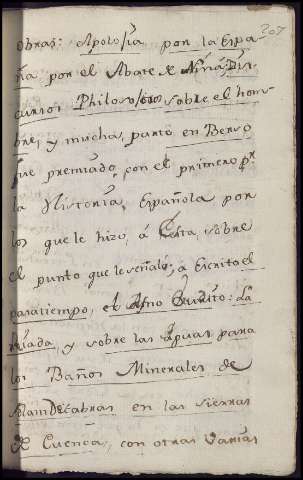 207
obras: Apología por la Espa-
ña por el Abate de Nina; Dis-
cursos Philosoficos sobre el hom-
bre; y mucha parte en Berso
fue premiado, con el primero pr.
la Historia, Española por
los que le hizo, á esta, sobre
el punto que le señaló; a Escrito el
paratiempo, el Asno Erudito: La
y sobre las Aguas para
los Baños Minerales de
Solan De Cabras en las sierras
de Cuenca, con otras varias